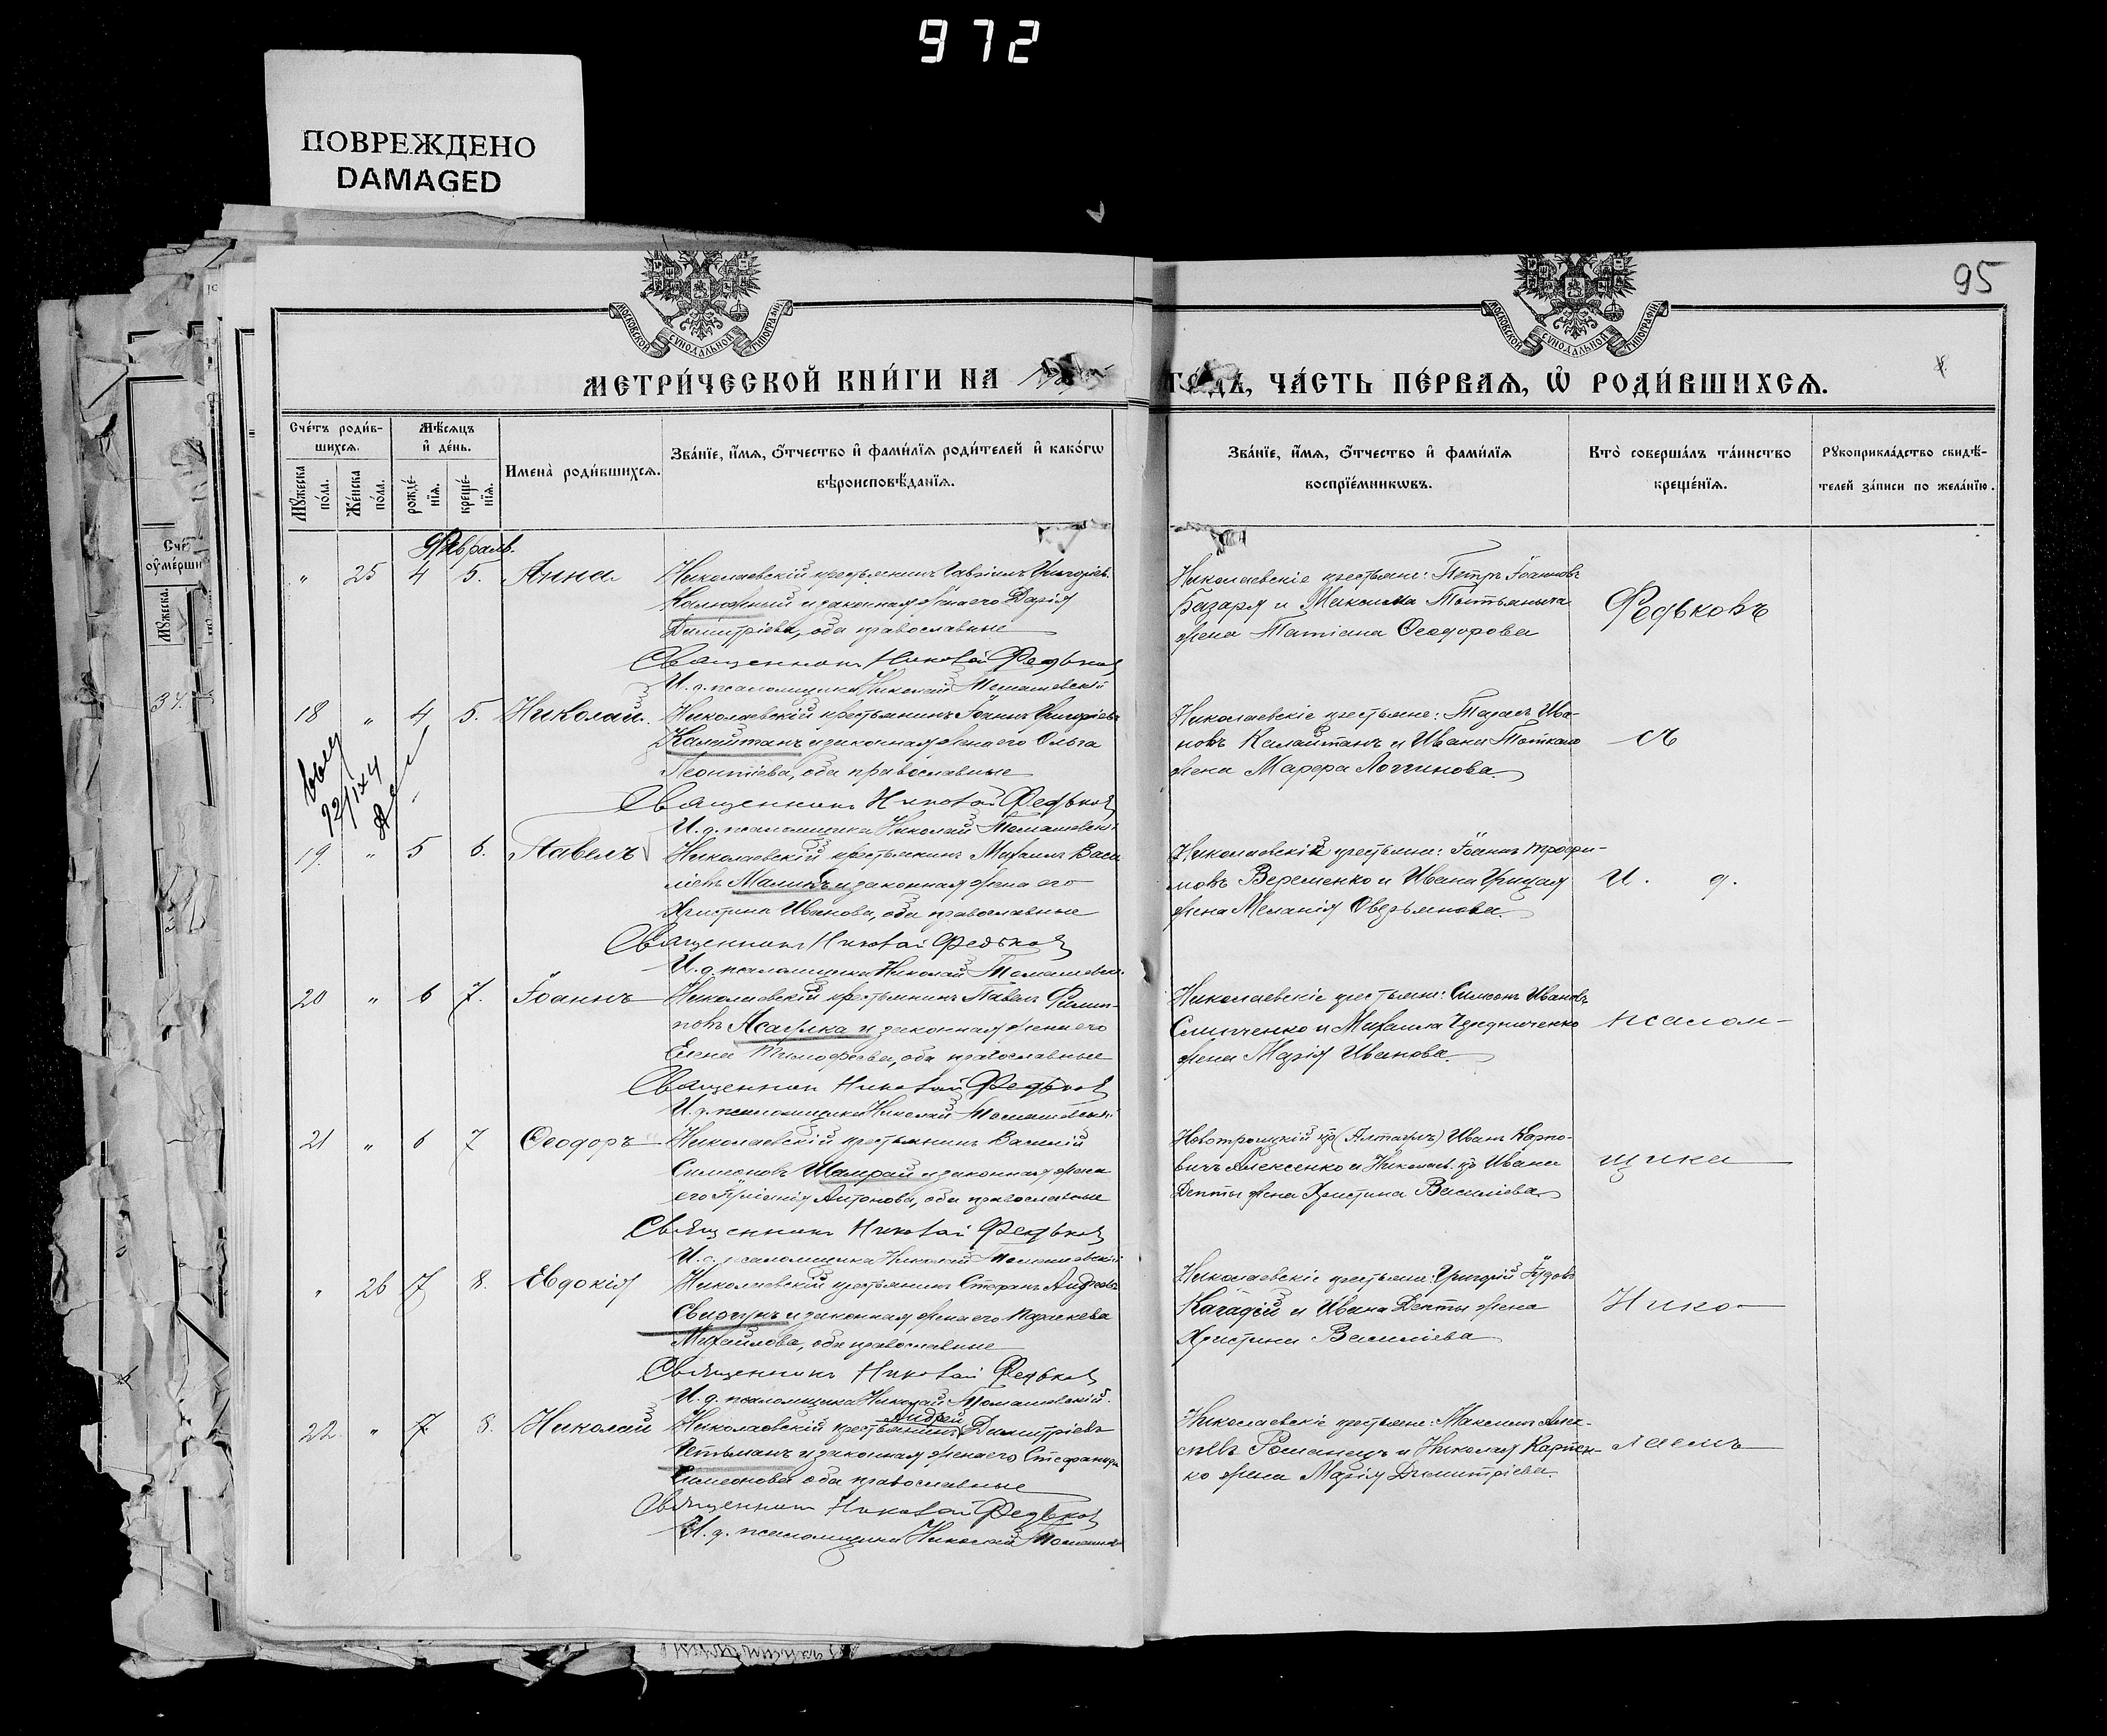 972
ПОВРЕЖДЕНО
DAMAGED
95
МОСКОВСКОЙ СѴНОДАЛЬНОЙ ТИПОГРАФІИ
МОСКОВСКОЙ СѴНОДАЛЬНОЙ ТИПОГРАФІИ
МЕТРИ́ЧЕСКОЙ КНИ́ГИ НА
ГОДЪ, ЧА́СТЬ ПЕ́РВАѦ, Ѡ҆ РОДИ́ВШИХСѦ.
Сче́тъ роди́в-
шихсѧ.
Мꙋ́жеска по́ла.
Же́нска по́ла.
Мѣ́сѧцъ
и҆ де́нь.
рожде́-
нїѧ.
креще́-
нїѧ.
Имена̀ роди́вшихсѧ.
Зва́нїе, и҆́мѧ, ѻ҆́тчество и҆ фами́лїѧ роди́телей и҆ како́гѡ
вѣроисповѣ́данїѧ.
Зва́нїе, и҆́мѧ, ѻ҆́тчество и҆ фами́лїѧ
воспрїе́мникѡвъ.
Кто̀ соверша́лъ та́инство
креще́нїѧ.
Рꙋкоприкла́дство свидѣ́-
телей за́писи по жела́нїю.
Сче
оу҆ме́рши
Мꙋ́жеска.
34
Февраль.
" 25 4 5. Анна
Николаевскій крестьянинъ Гавріилъ Григоріев.
Калюжный и законная жена его Дарія
Димитріева, оба православные
Священникъ Николай Федьков
И. д. псаломщика Николай Томашевскій
Николаевскіе крестьяне: Петръ Іоанновъ
Базаря и
жена Татіана Ѳеодорова
Федьковъ
18 " 4 5. Николай
Николаевскій крестьянинъ Іоаннъ Григоріевъ
Калайтанъ и законная жена его Ольга
Леонтіева, оба православные
Священникъ Николай Федьков
И. д. псаломщика Николай Томашевскі
Николаевскіе крестьяне: Тарасъ Ива-
новъ Калайтанъ и Ивана
жена Марѳа Логгинова
съ
19. " 5 6. Павелъ
Николаевскій крестьянинъ Михаилъ Васи
ліевъ и законная жена его
Христина Иванова, оба православные
Священникъ Николай Федьков
И. д. псаломщика Николай Томашевск.
крестьяне: Іоаннъ Трофи-
мовъ Веременко и Ивана Грицая
жена Меланія
И. д.
20 " 6 7. Іоаннъ
Николаевскій крестьянинъ Павелъ Филип-
повъ и законная жена его
Елена Тимофеева, оба православные
Священникъ Николай Федьков
И. д. псаломщика Николай Томашевскі
Николаевскіе крестьяне: Симеонъ Ивановъ
и Михаила Чередниченко
жена Марія Иванова.
псалом-
21 " 6 7 Ѳеодоръ
Николаевскій крестьянинъ Василій
Симеоновъ Шамрай и законная жена
его Антонова, оба православные
Священникъ Николай Федьков
И. д. псаломщика Николай Томашевскій
Новотроицкій кр. Иванъ Карпо-
вичъ Алексенко и Николаев. кр. Ивана
Депты жена Христина Василіева
щика
" 26 7 8. Евдокія
Николаевскій крестьянинъ Стефанъ Андреевъ
Свидунъ и законная жена его Параскева
Михайлова, оба православные
Священникъ Николай Федьков
И. д. псаломщика Николай Томашевскій.
Николаевскіе крестьяне: Григорій
и Ивана Депты жена
Христина Василіева
Нико-
22 " 7 8. Николай
Андрей
Николаевскій крестьянинъ Димитріевъ
Гетьманъ и законная жена его Стефанида
Симеонова оба православные
Священникъ Николай Федьков
И. д. псаломщика Николай
Николаевскіе крестьяне: Максимъ Алек-
сѣевъ Романецъ и Николая Карпен-
ко жена Марія Димитріева.
лаемъ